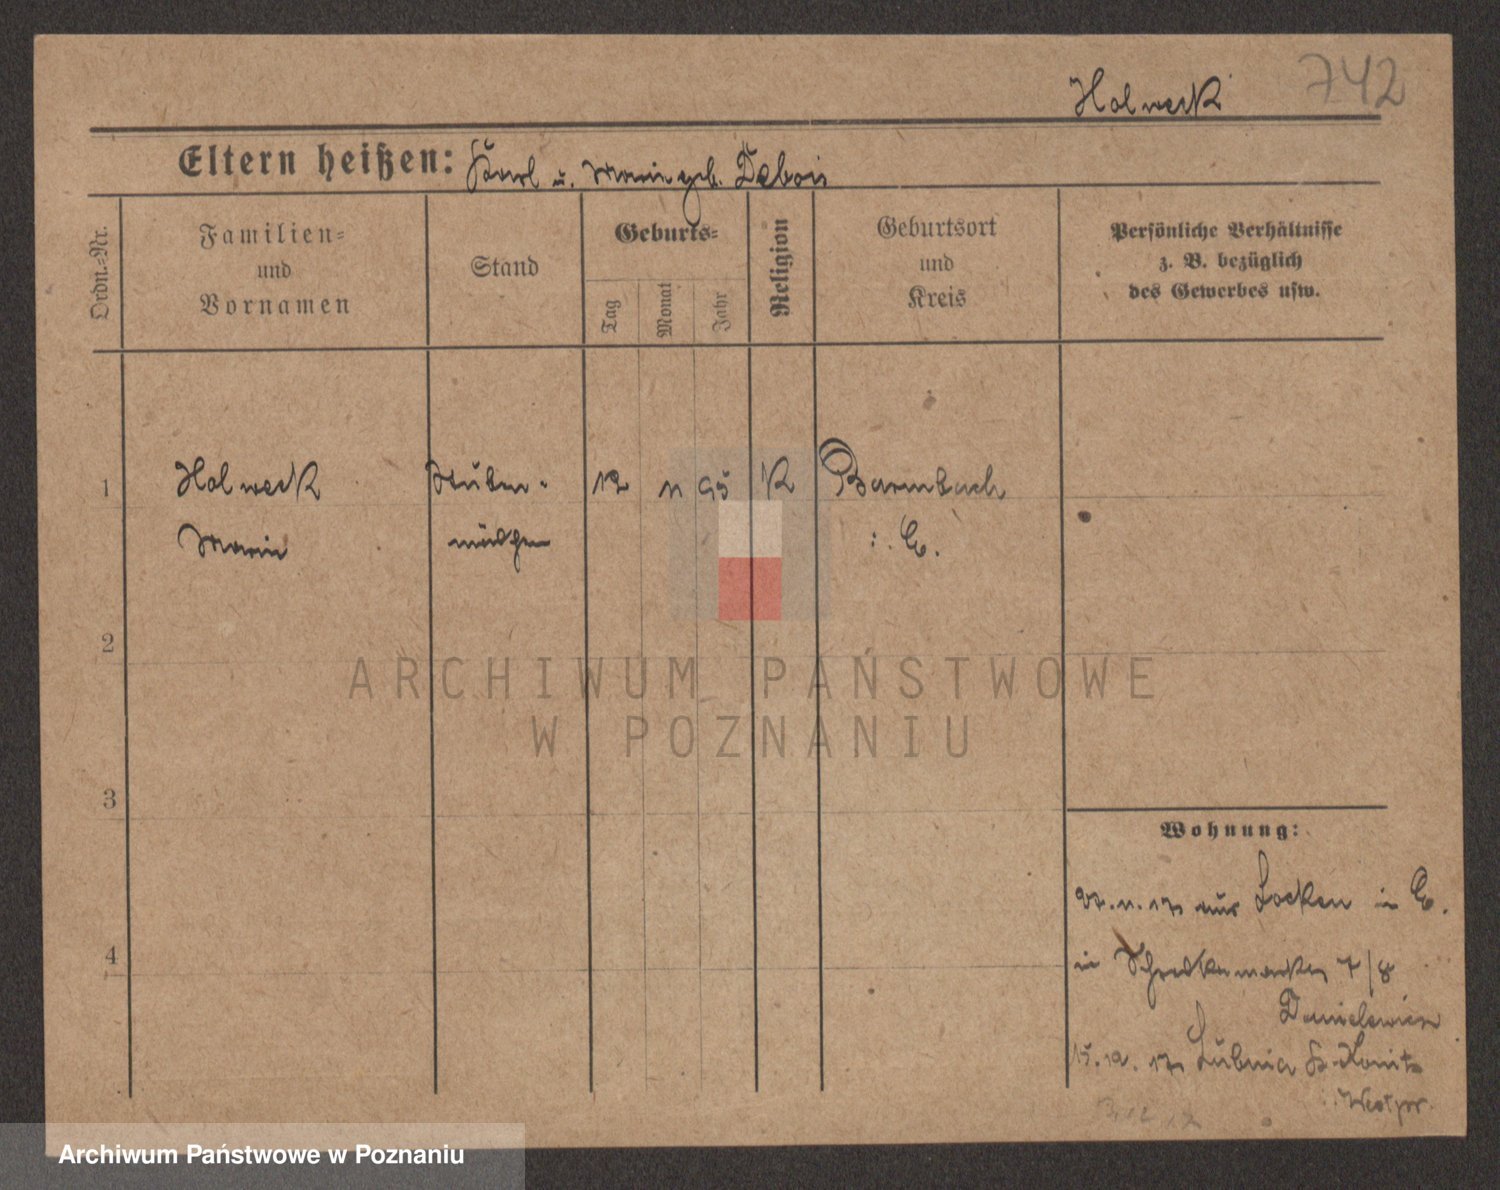 Holweck 742
Eltern heißen: Karl u. Marie geb. Debois
Ordn.-Nr.
Familien-
und
Vornamen
Stand
Geburts-
Tag
Monat
Jahr
Religion
Geburtsort
und
Kreis
Persönliche Verhältnisse
z. B. bezüglich
des Gewerbes usw.
1 Holweck Stuben- 12 11 95 K Barmbach
Marie mädchen i. E.
2
ARCHIWUM PAŃSTWOWE
W POZNANIU
3
Wohnung:
27. 11. 17 aus Locken in E.
4
in 7/8
Danielewicz
15. 12. 17 Lubnia Kr. Konitz
i. Westpr.
12 17
Archiwum Państwowe w Poznaniu